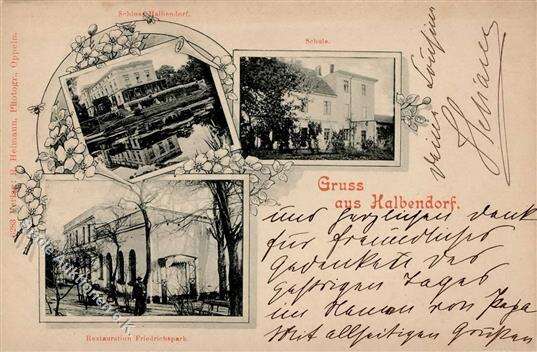 Schloss Halbendorf.
Schule.
Restauration Friedrichspark.
Verlag R. Heimann, Photogr., Oppeln.
Gruss
aus Halbendorf.
und herzlichen Dank
für freundliches
Gedenken des
gestrigen Tages
im Namen von Papa
Mit allseitigen Grüßen